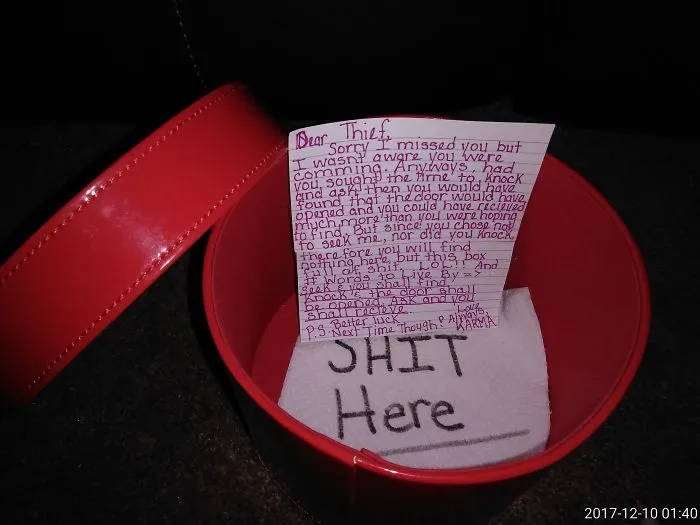 Dear Thief,
Sorry I missed you but
I wasn't aware you were
comming. Anyways, had
you sought the time to knock
and ask then you would have
found that the door would have
opened and you could have recieved
much more than you were hoping
to find. But since you chose not
to seek me, nor did you knock
therefore you will find
nothing here, but this box
full of shit. LOL!! And
# words to Live By =>
seek & you shall find,
Knock & the door shall
be opened, Ask and you
shall recieve.
P.S. Better luck
Next Time Though!
Love
Always,
KARMA
SHIT
Here
2017-12-10 01:40